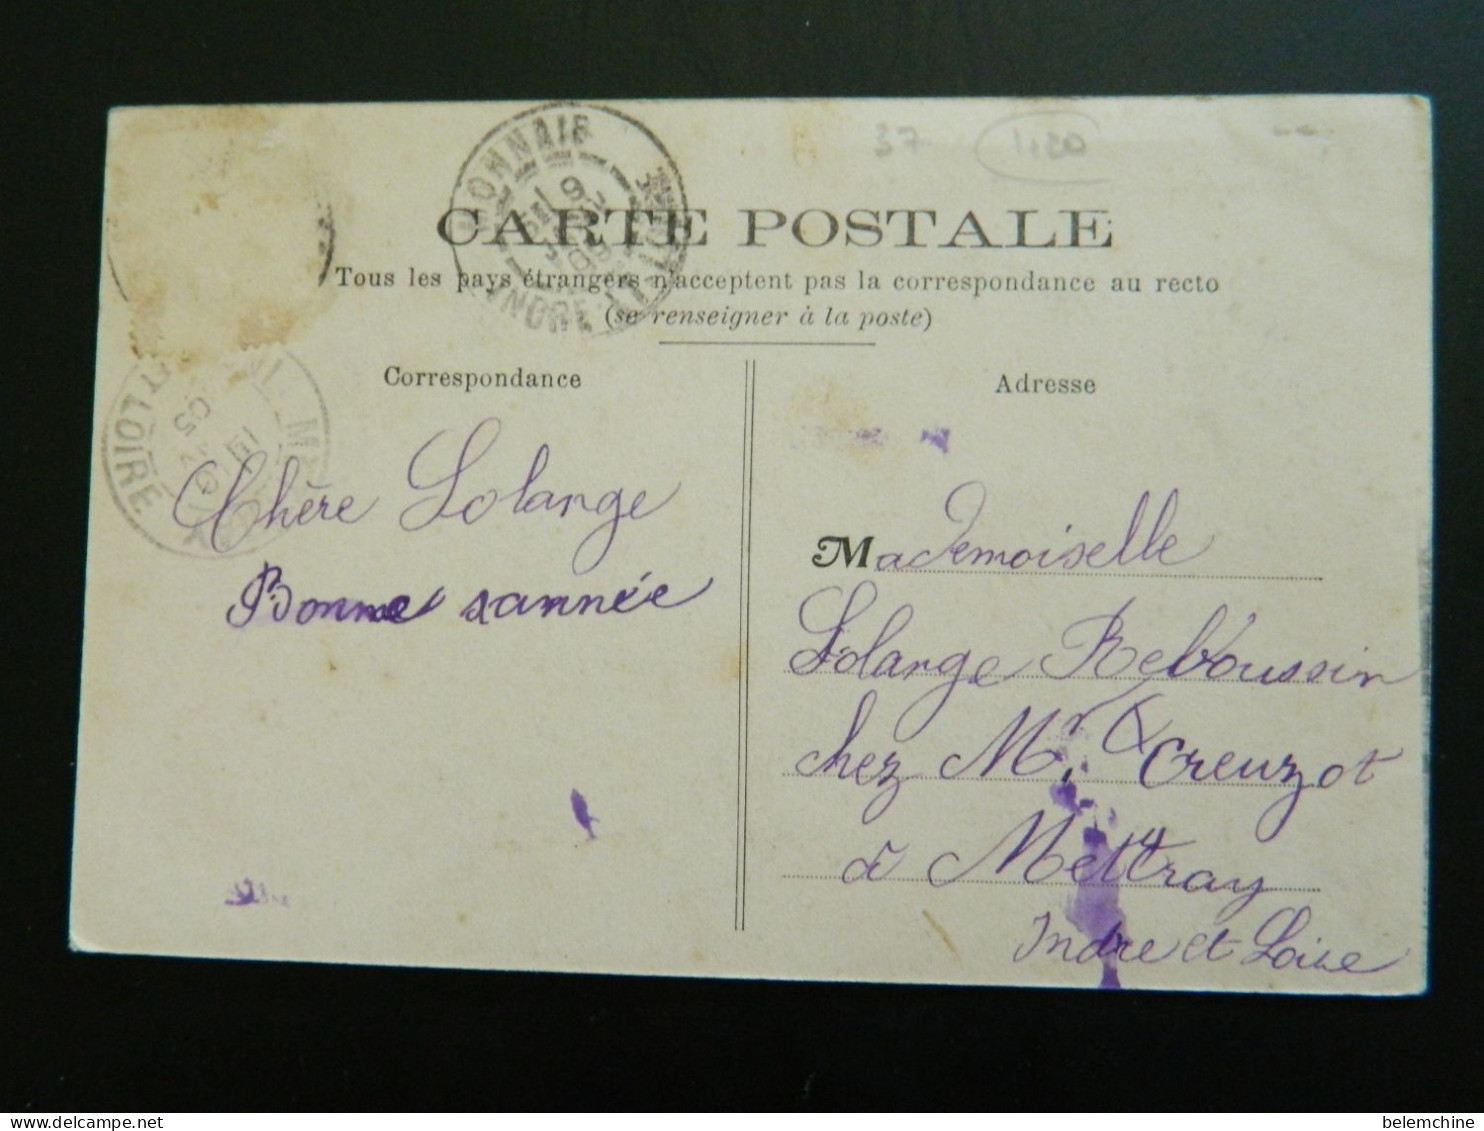 37 1,20
MONNAIE
INDRE-ET-LOIRE
CARTE POSTALE
Tous les pays étrangers n'acceptent pas la correspondance au recto
(se renseigner à la poste)
Correspondance
Adresse
ET LOIRE
05
Chère Solange
Bonne année
Mademoiselle
Solange Reboussin
chez Mr Creuzot
à Mettray
Indre et Loire
belemchine